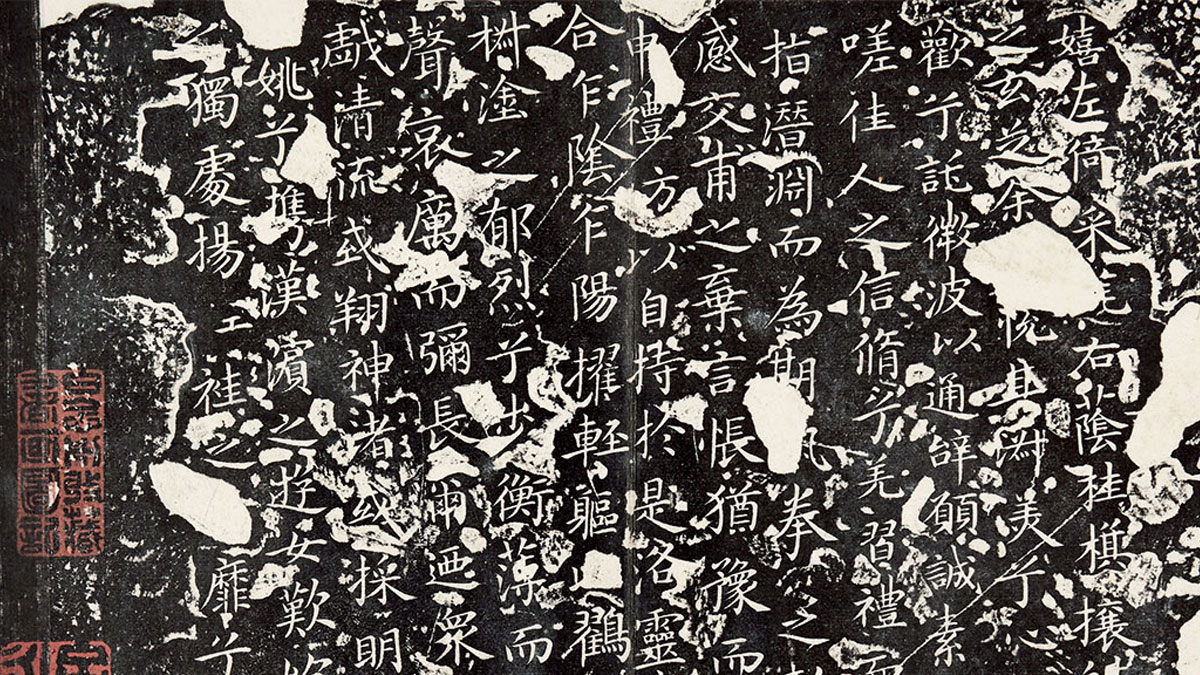 嬉左倚采旄右蔭桂棋攘
之玄芝余悅其淑美兮心
歡兮託微波以通辭願誠素
嗟佳人之信脩兮羌習禮而
指潛淵而為期拳之
感交甫之棄言悵猶豫而
申禮方以自持於是洛靈
合乍陰乍陽擢輕軀以鶴
樹塗之郁烈兮步衡薄而
聲哀厲而彌長爾迺眾
戲清流或翔神渚或採明
姚兮攜漢濱之遊女歎
之獨處揚袿之靡兮